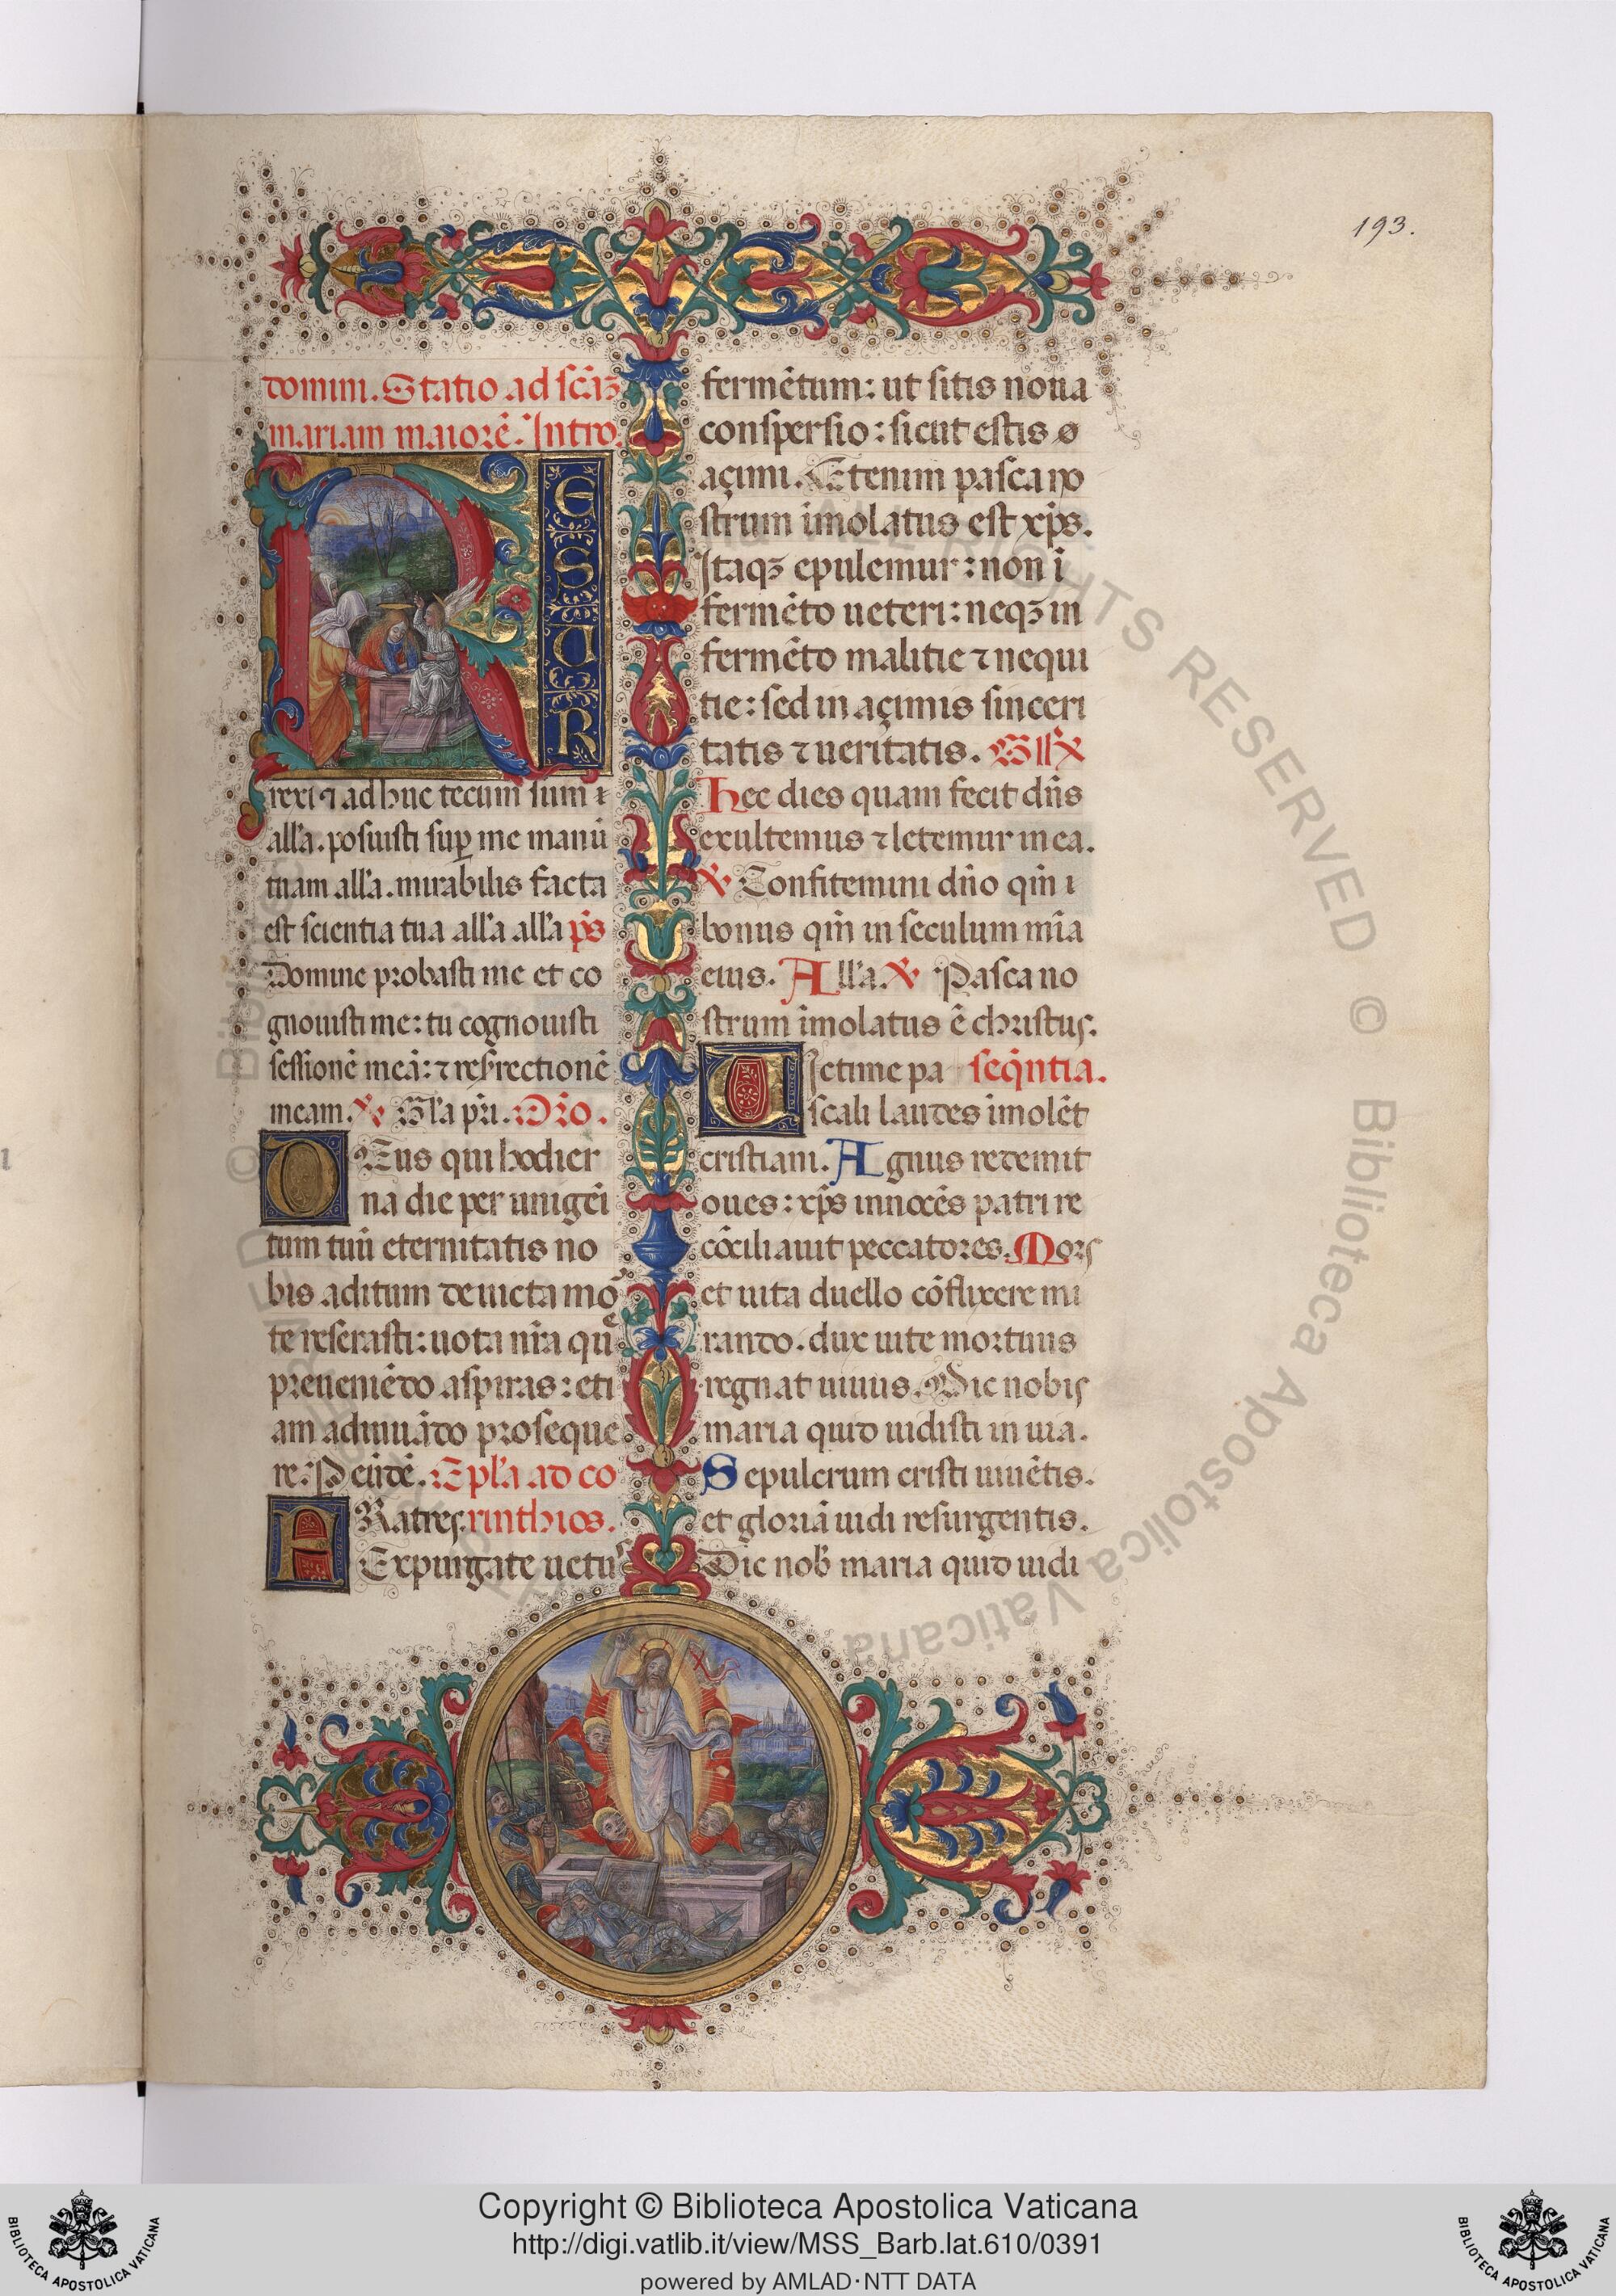 193.
domini. Statio ad scāꝫ
mariam maiorē. Intro.
R
E
S
U
R
rexi ⁊ adhuc tecum sum ı
all'a. posuisti suꝑ me manū
tuam all'a. mirabilis facta
est scientia tua all'a all'a p̄s
Domine probasti me et co
gnouisti me: tu cognouisti
sessionē meā: ⁊ resrrectionē
meam. ℣ Gl'a pr̄i. Or̄o.
DEus qui hodier
na die per unigēi
tum tuū eternitatis no
bis aditum deuicta mor
te reserasti: uota nr̄a que
preueniēdo aspiras: eti
am adiuuādo proseque
re. P eūdē. Epl'a ad co
FRatres. rinthios.
Expurgate uetus
fermētum: ut sitis noua
conspersio: sicut estis ø
açimi. Etenim pasca no
strum imolatus est xp̄s.
Itaqꝫ epulemur: non ī
fermēto ueteri: neqꝫ in
fermēto malitie ⁊ nequi
tie: sed in açimis sinceri
tatis ⁊ ueritatis. Gr̄
Hec dies quam fecit dn̄s
exultemus ⁊ letemur in ea.
℣ Confitemini dn̄o qm̄ ı
bonus qm̄ in seculum mīa
eius. All'a. ℣ Pasca no
strum imolatus ē christus.
Uictime pa seq̄ntia.
scali laudes imolēt
cristiani. Agnus redemit
oues: xp̄s innocēs patri re
cōciliauit peccatores. Mors
et uita duello cōflixere mi
rando. dux uite mortuus
regnat uiuus. Dic nobis
maria quid uidisti in uia.
Sepulcrum cristi uiuētis.
et gloriā uidi resurgentis.
Dic nob' maria quid uidi
ALL RIGHTS RESERVED © Biblioteca Apostolica Vaticana
Copyright © Biblioteca Apostolica Vaticana
http://digi.vatlib.it/view/MSS_Barb.lat.610/0391
powered by AMLAD·NTT DATA
BIBLIOTECA APOSTOLICA VATICANA
BIBLIOTECA APOSTOLICA VATICANA